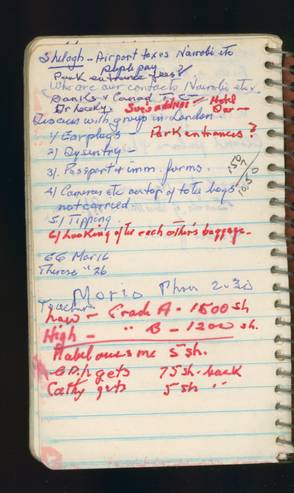 Shilogh - Airport taxes Nairobi etc
Park entrance fees?
Who are our contacts Nairobi etc.
Banks &
Sue's address - Hotel
Bar -
Discuss with group in London.
1) Earplugs - Park entrances?
2) Dysentry -
3). Passport & imm. forms.
4) Cameras etc on top of tote bags
not carried.
5) Tipping.
6) Looking after each other's baggage.
150/
GG Mar 16
Therese " 26
Mario Phon 2.30
Teachers
Low - Grade A - 1500 sh
High - " B - 1200 sh.
Mabel owes me 5 sh.
gets 75 sh. back
Cathy gets 5 sh "